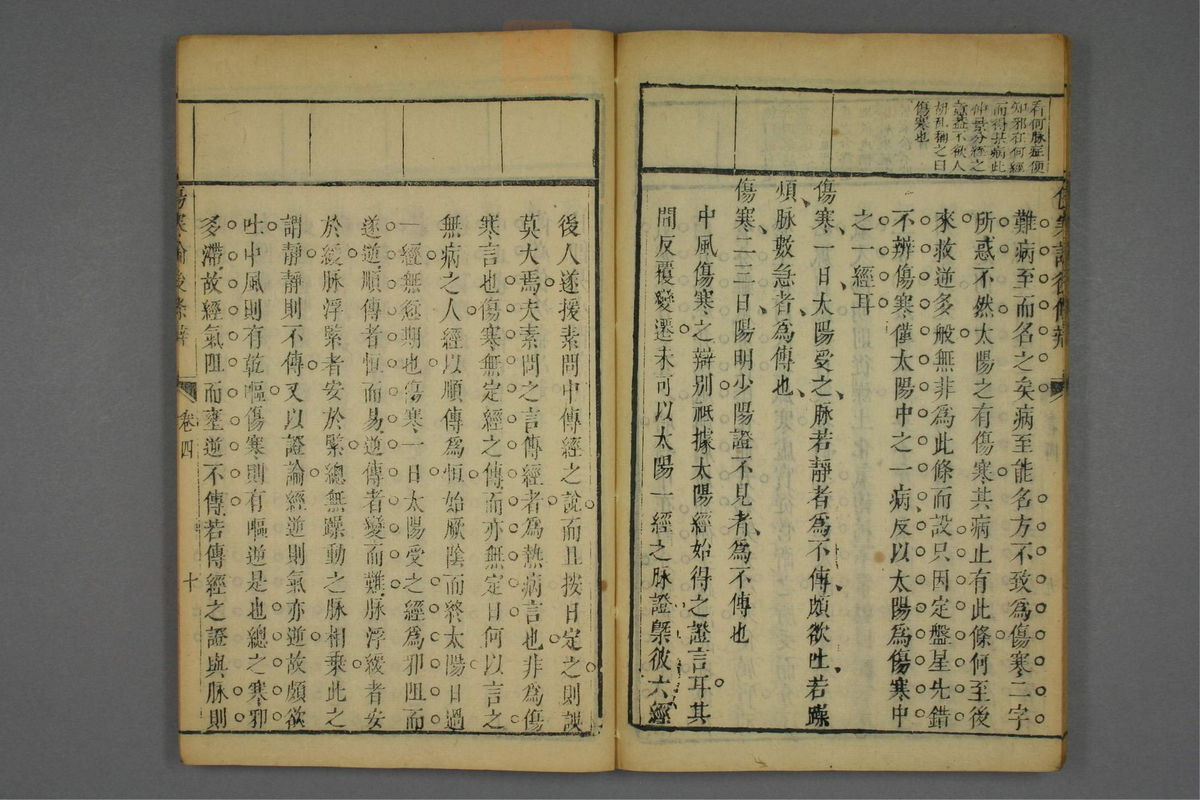 看何脉症便
知邪在何經
而得其病此
仲景分經之
意蓋不欲人
胡乱稱之曰
傷寒也
難病至而名之矣病至能名方不致為傷寒二字
所惑不然太陽之有傷寒其病止有此條何至後
來救逆多般無非為此條而設只因定盤星先錯
不辨傷寒僅太陽中之一病反以太陽為傷寒中
之一經耳
傷寒一日太陽受之脉若靜者為不傳頗欲吐若躁
煩脉數急者為傳也
傷寒二三日陽明少陽證不見者為不傳也
中風傷寒之辯別祇據太陽經始得之證言耳其
間反覆變遷未可以太陽一經之脉證槩彼六經
後人遂援素問中傳經之說而且按日定之則誤
莫大焉夫素問之言傳經者為熱病言也非為傷
寒言也傷寒無定經之傳而亦無定日何以言之
無病之人經以順傳為恒始厥陰而終太陽日過
一經無愆期也傷寒一日太陽受之經為邪阻而
遂逆順傳者恒而易逆傳者變而難脉浮緩者安
於緩脉浮緊者安於緊總無躁動之脉相乗此之
謂靜靜則不傳又以證論經逆則氣亦逆故頗欲
吐中風則有乾嘔傷寒則有嘔逆是也總之寒邪
多滯故經氣阻而壅逆不傳若傳經之證與脉則
傷寒論後條辨
卷四
十